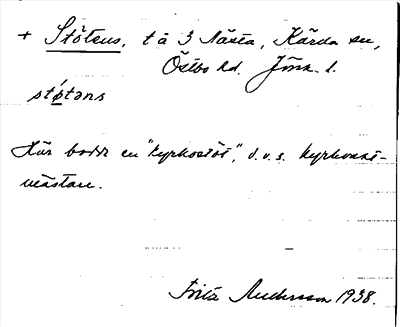 + Stötens, t å 3 Nästa, Kärda sn,
Östbo hd. Jönk. l.
stǿtəns
Här bodde en "kyrkostöt", d.v.s. kyrkovakt-
mästare.
Fritz Andersson 1938.